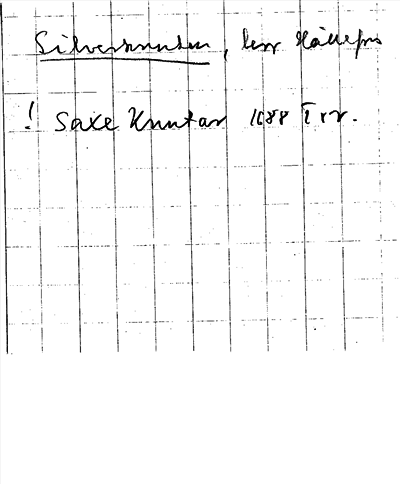 Silverknuten, lerr Hällefors
! Saxe Knutar 1688 Trr.